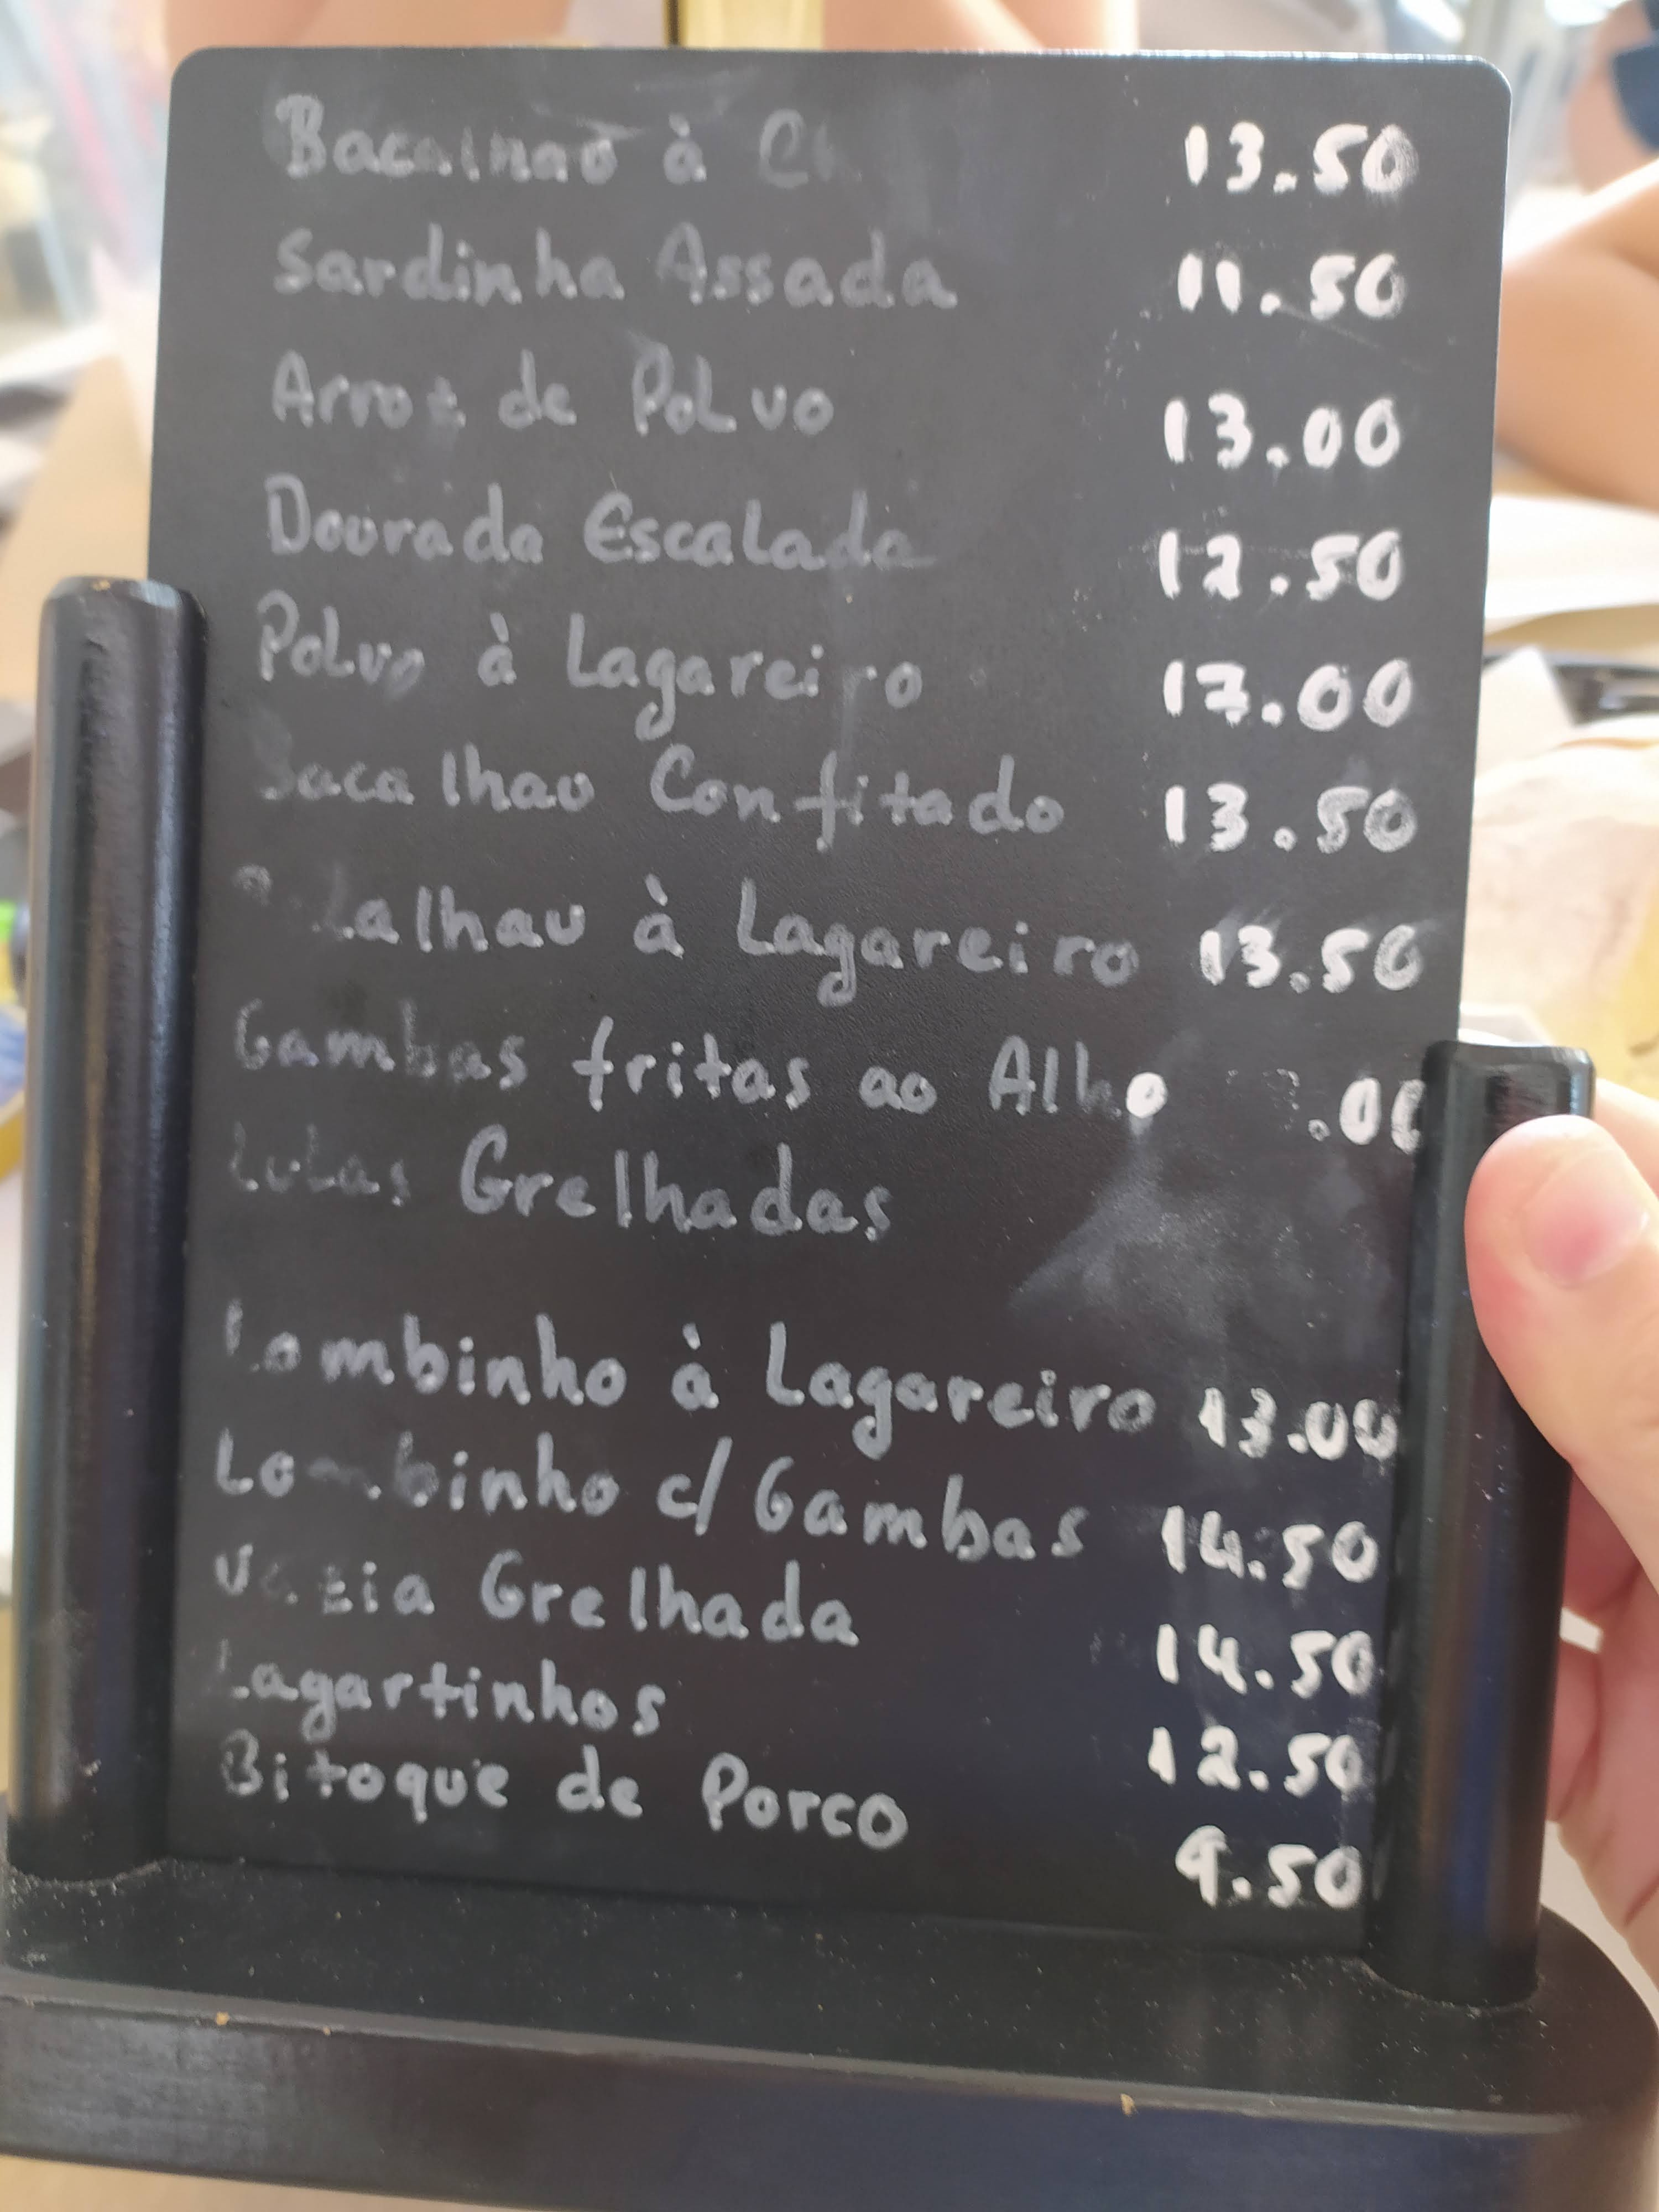 Bacalhau à 13.50
Sardinha Assada 11.50
Arroz de Polvo 13.00
Dourada Escalada 12.50
Polvo à Lagareiro 17.00
Bacalhau Confitado 13.50
Bacalhau à Lagareiro 13.50
Gambas fritas ao Alho
Lulas Grelhadas
Lombinho à Lagareiro 13.00
Lombinho c/ Gambas 14.50
Vazia Grelhada 14.50
Lagartinhos 12.50
Bitoque de Porco 9.50